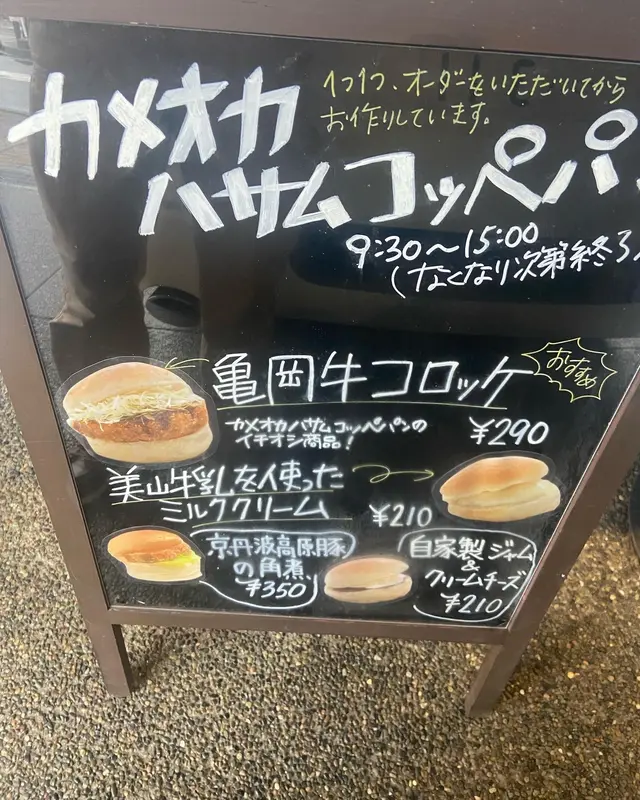 カメオカ
1つ1つ、オーダーをいただいてから
お作りしています。
ハサムコッペパ
9:30〜15:00
(なくなり次第終了
亀岡牛コロッケ
おすすめ
カメオカハサムコッペパンの
イチオシ商品!
¥290
美山牛乳を使った
ミルククリーム
¥210
京丹波高原豚
の角煮
¥350
自家製ジャム
&
クリームチーズ
¥210